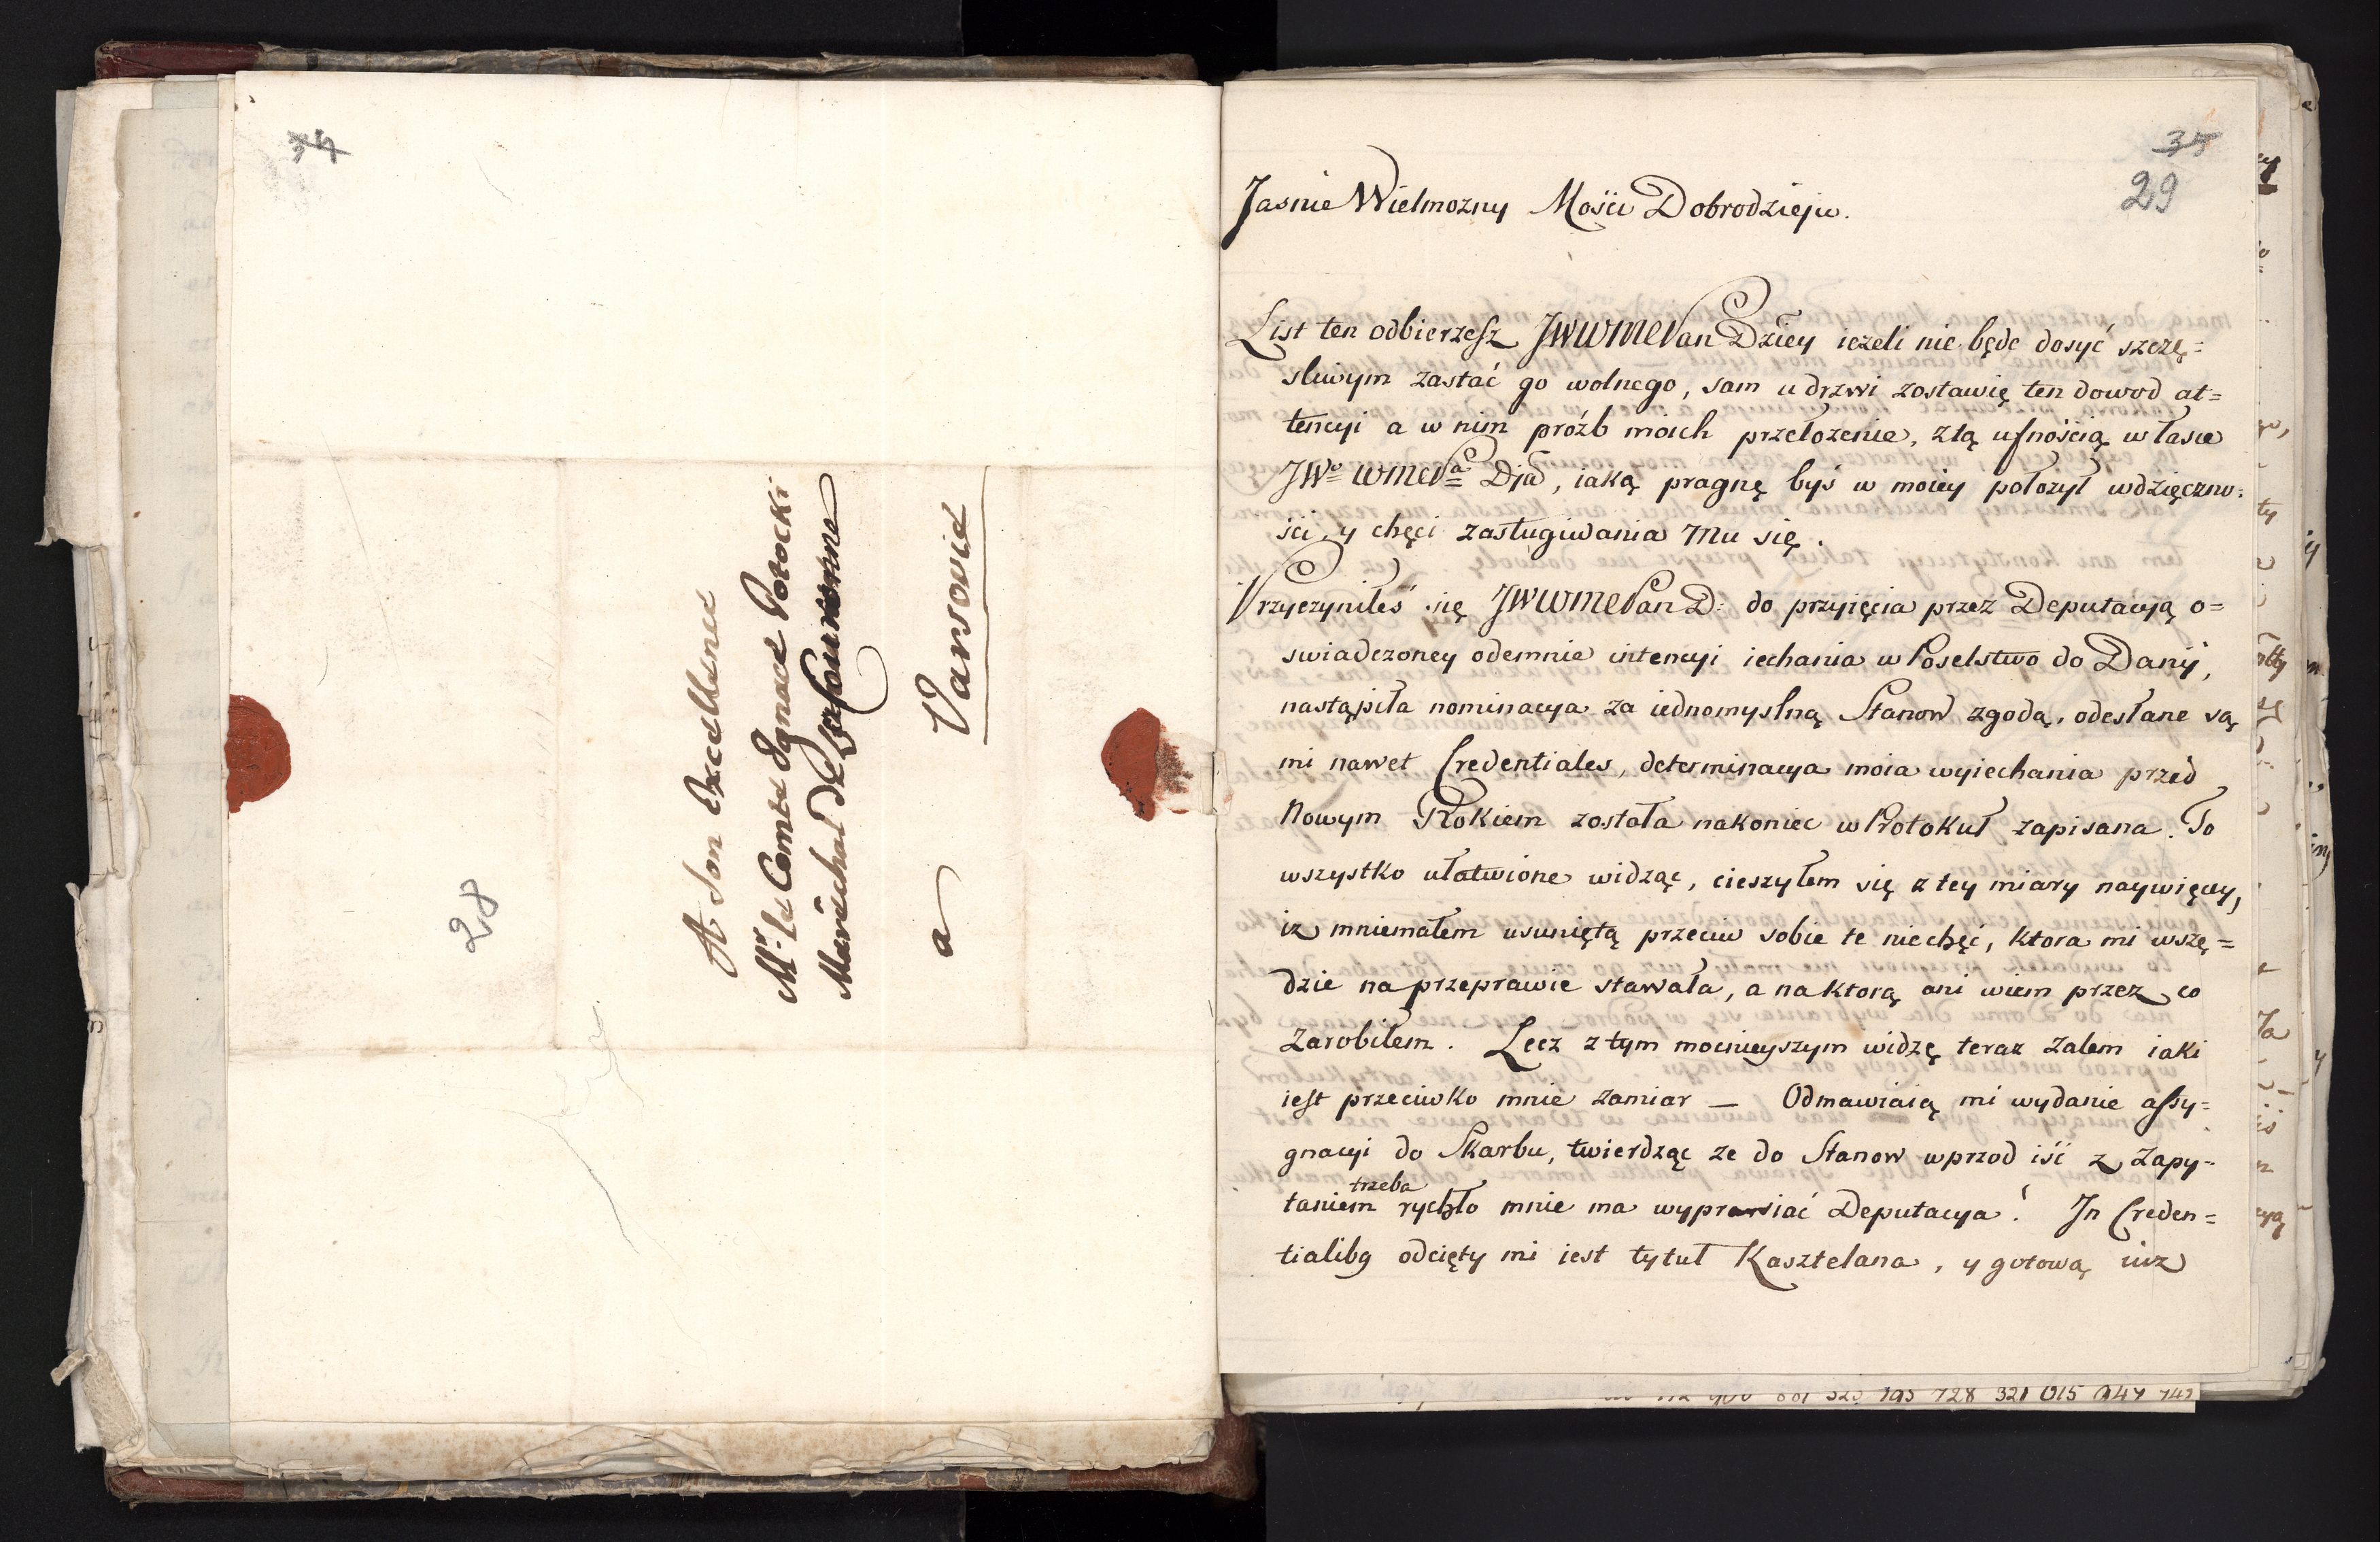 34
28
A Son Excellence
Mr. le Comte Ignace Potocki
Marechal de
a Varsovie
35
29
Jasnie Wielmozny Mości Dobrodzieju.
List ten odbierzesz JWWMCPan Dziey iezeli nie będe dosyć szczę=
sliwym zastać go wolnego, sam u drzwi zostawię ten dowod at=
tencyi a w nim próżb moich przełozenie, z tą ufnością w łasce
JWo WMCPa Dja, iaką pragnę byś w moiey położył wdzięczno=
ści y chęci zasługiwania Mu się.
Przyczyniłeś się JWWMCPan D: do przyięcia przez Deputacyą o=
swiadczoney odemnie intencyi iechania w Poselstwo do Danij,
nastąpiła nominacya za iednomyslną Stanow zgodą, odesłane są
mi nawet Credentiales, determinacya moia wyiechania przed
Nowym Rokiem została nakoniec w Protokuł zapisana. To
wszystko ułatwione widząc, cieszyłem się z tey miary naywięcey,
iz mniemałem usuniętą przeciw sobie te niechęć, ktora mi wszę=
dzie na przeprawie stawała, a na ktorą ani wiem przez co
zarobiłem. Lecz z tym mocnieyszym widzę teraz zalem iaki
iest przeciwko mnie zamiar — Odmawiaią mi wydanie assy=
gnacyi do Skarbu, twierdząc ze do Stanow wprzod iść z zapy=
trzeba
taniem rychło mnie ma wyprawiać Deputacya! In Creden=
tialibg odcięty mi iest tytuł Kasztelana, y gotową iuz
728 321 015 947 742